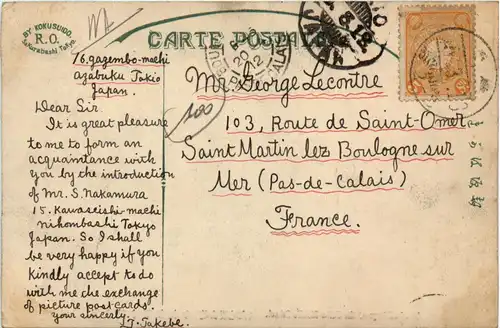 BY KOKUSUIDO.
R.O.
Sakurabashi Tokyo.
CARTE POSTALE
100
76. gagembo-machi
Azabuku Tokio
Japan.
Dear Sir.
It is great pleasure
to me to form an
acquaintance with
you by the introduction
of Mr. S. Nakamura
15. Kawaseishi-machi
nihombashi Tokyo
Japan. So I shall
be very happy if you
kindly accept to do
with me the exchange
of picture postcards.
your sincerly.
Mr. George Lecontre
103, Route de Saint-Omer
Saint Martin lez Boulogne sur
Mer (Pas-de-Calais)
France.